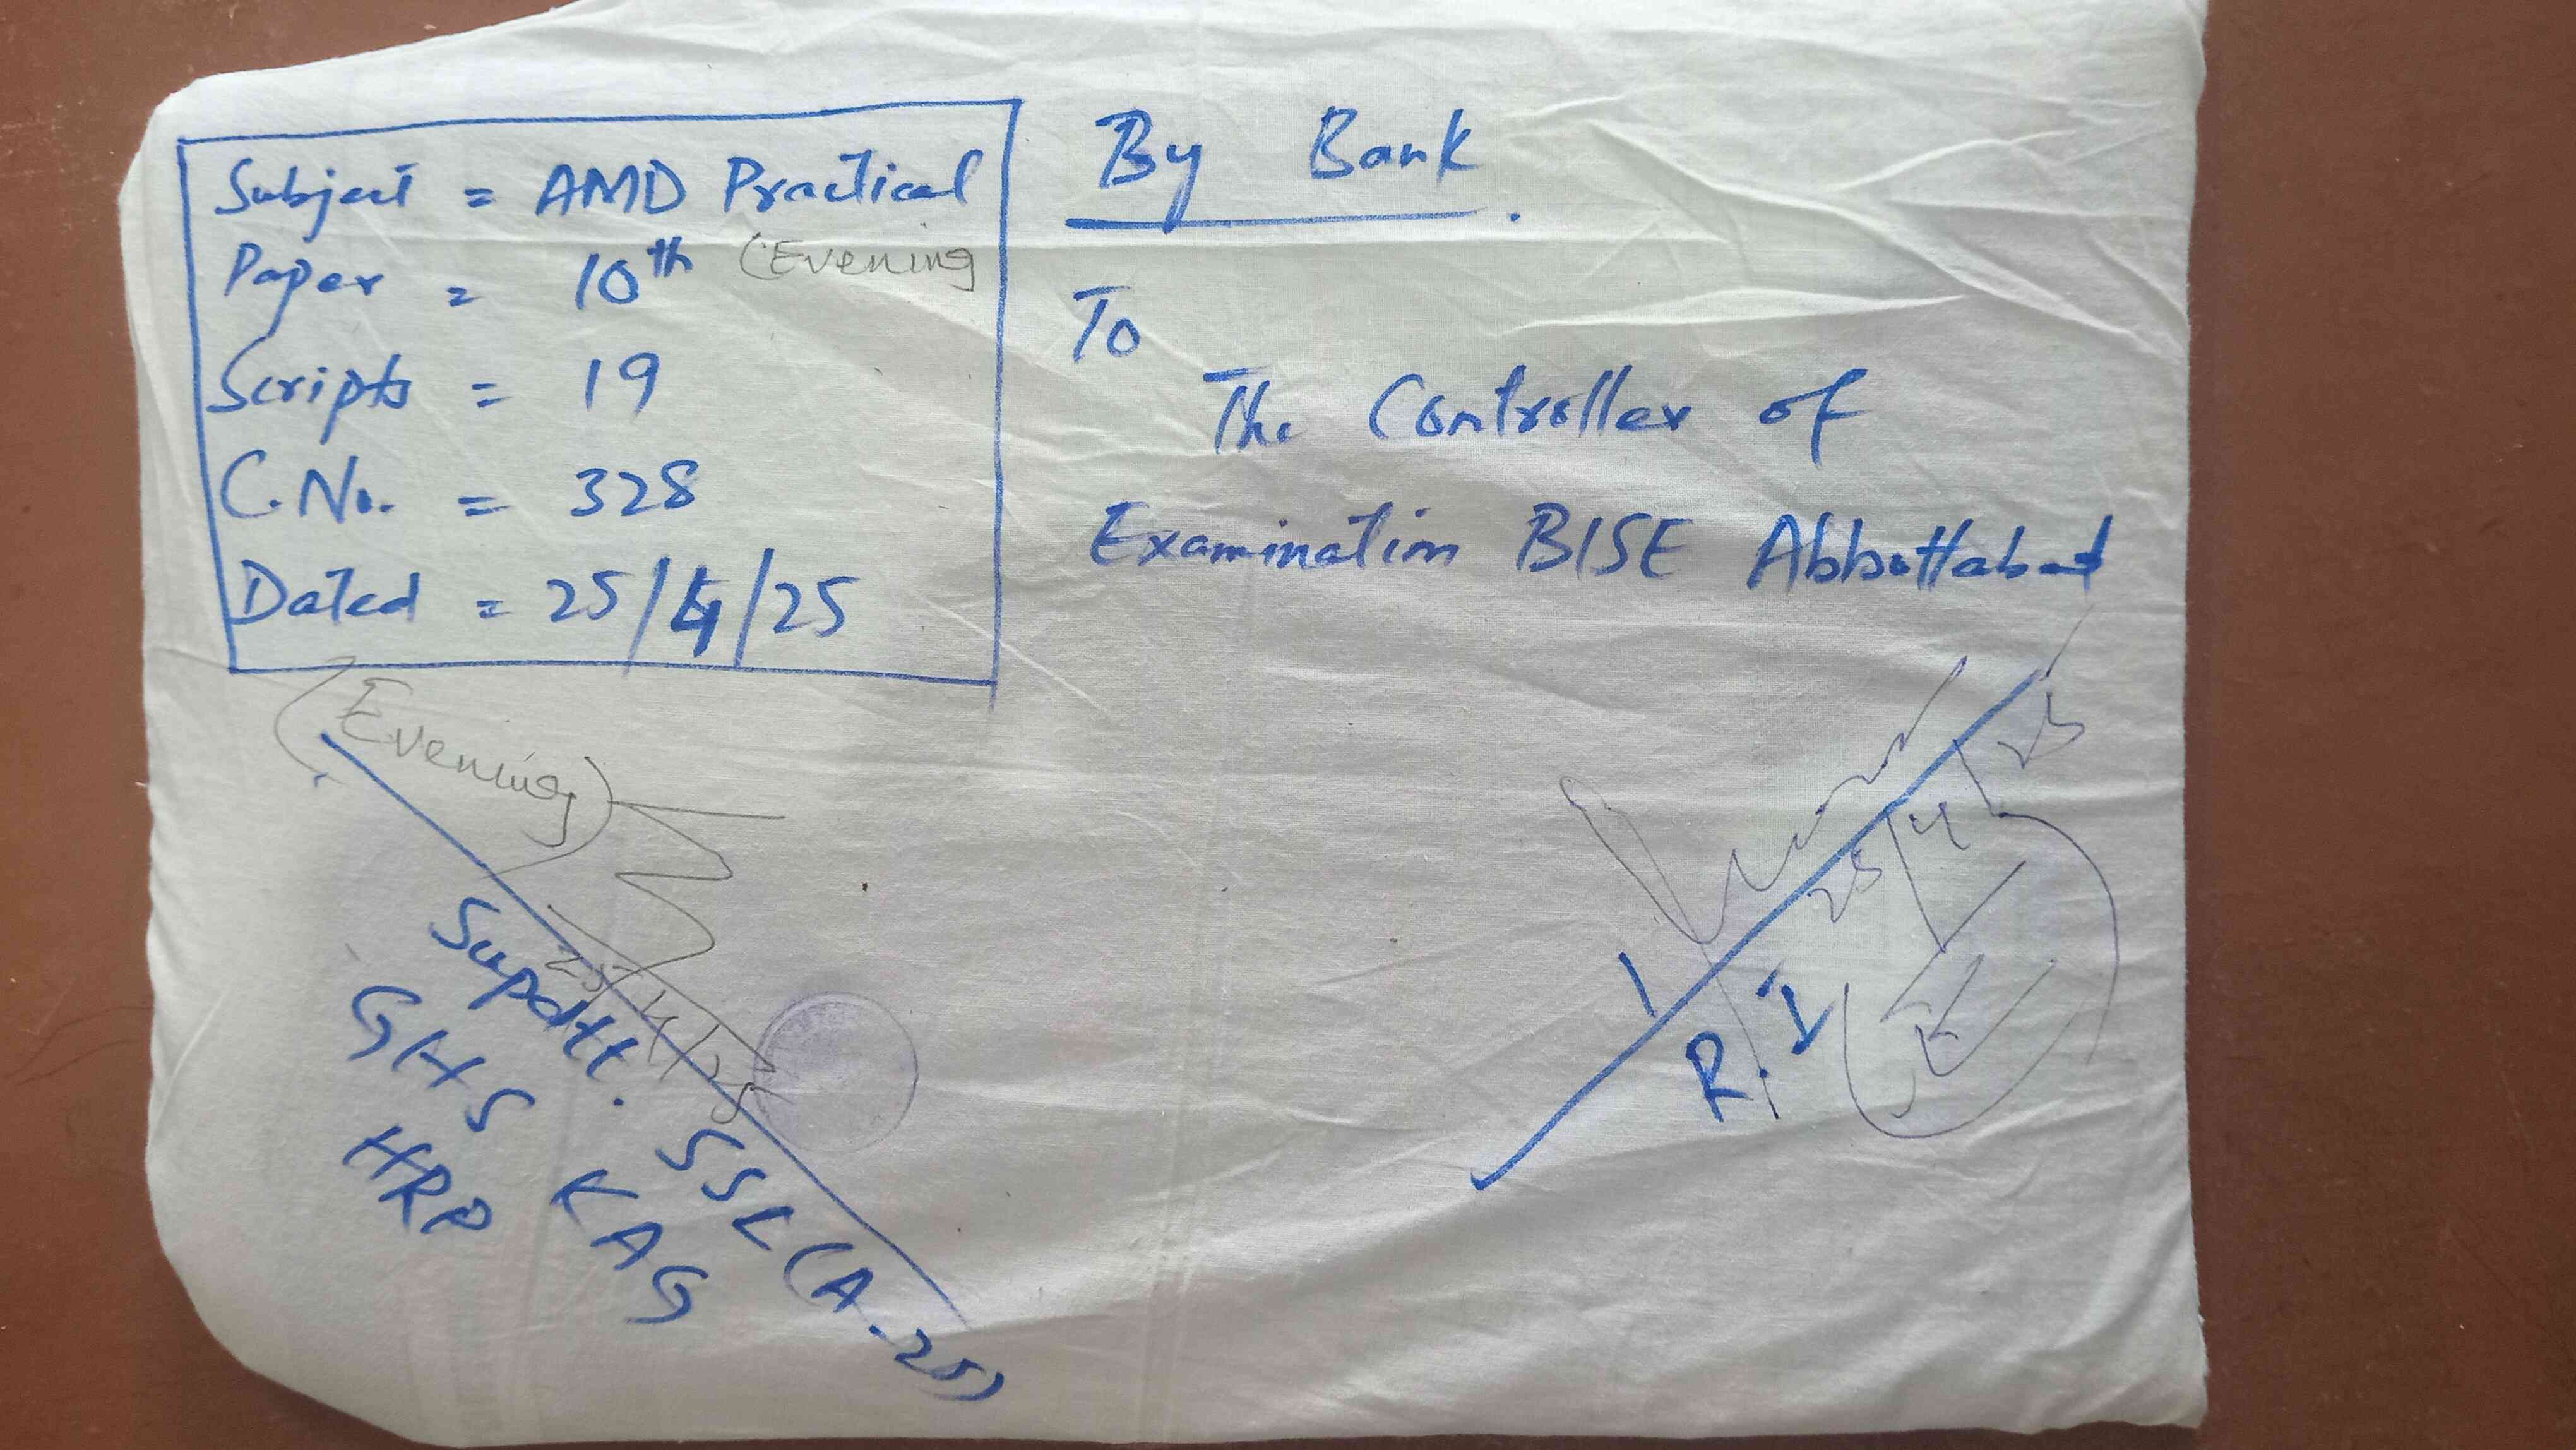 Subject = AMD Practical
Paper = 10th (Evening
Scripts = 19
C.No. = 328
Dated = 25/4/25
By Bank.
To
The Controller of
Examination BISE Abbottabad
(Evening)
25/4/25
Supdtt. SSC (A-25)
GHS KAG
HRP
25/4/25
R.I